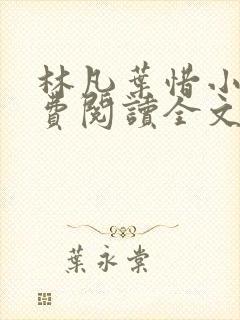 林凡葉惜小
費閱讀全文
葉永棠